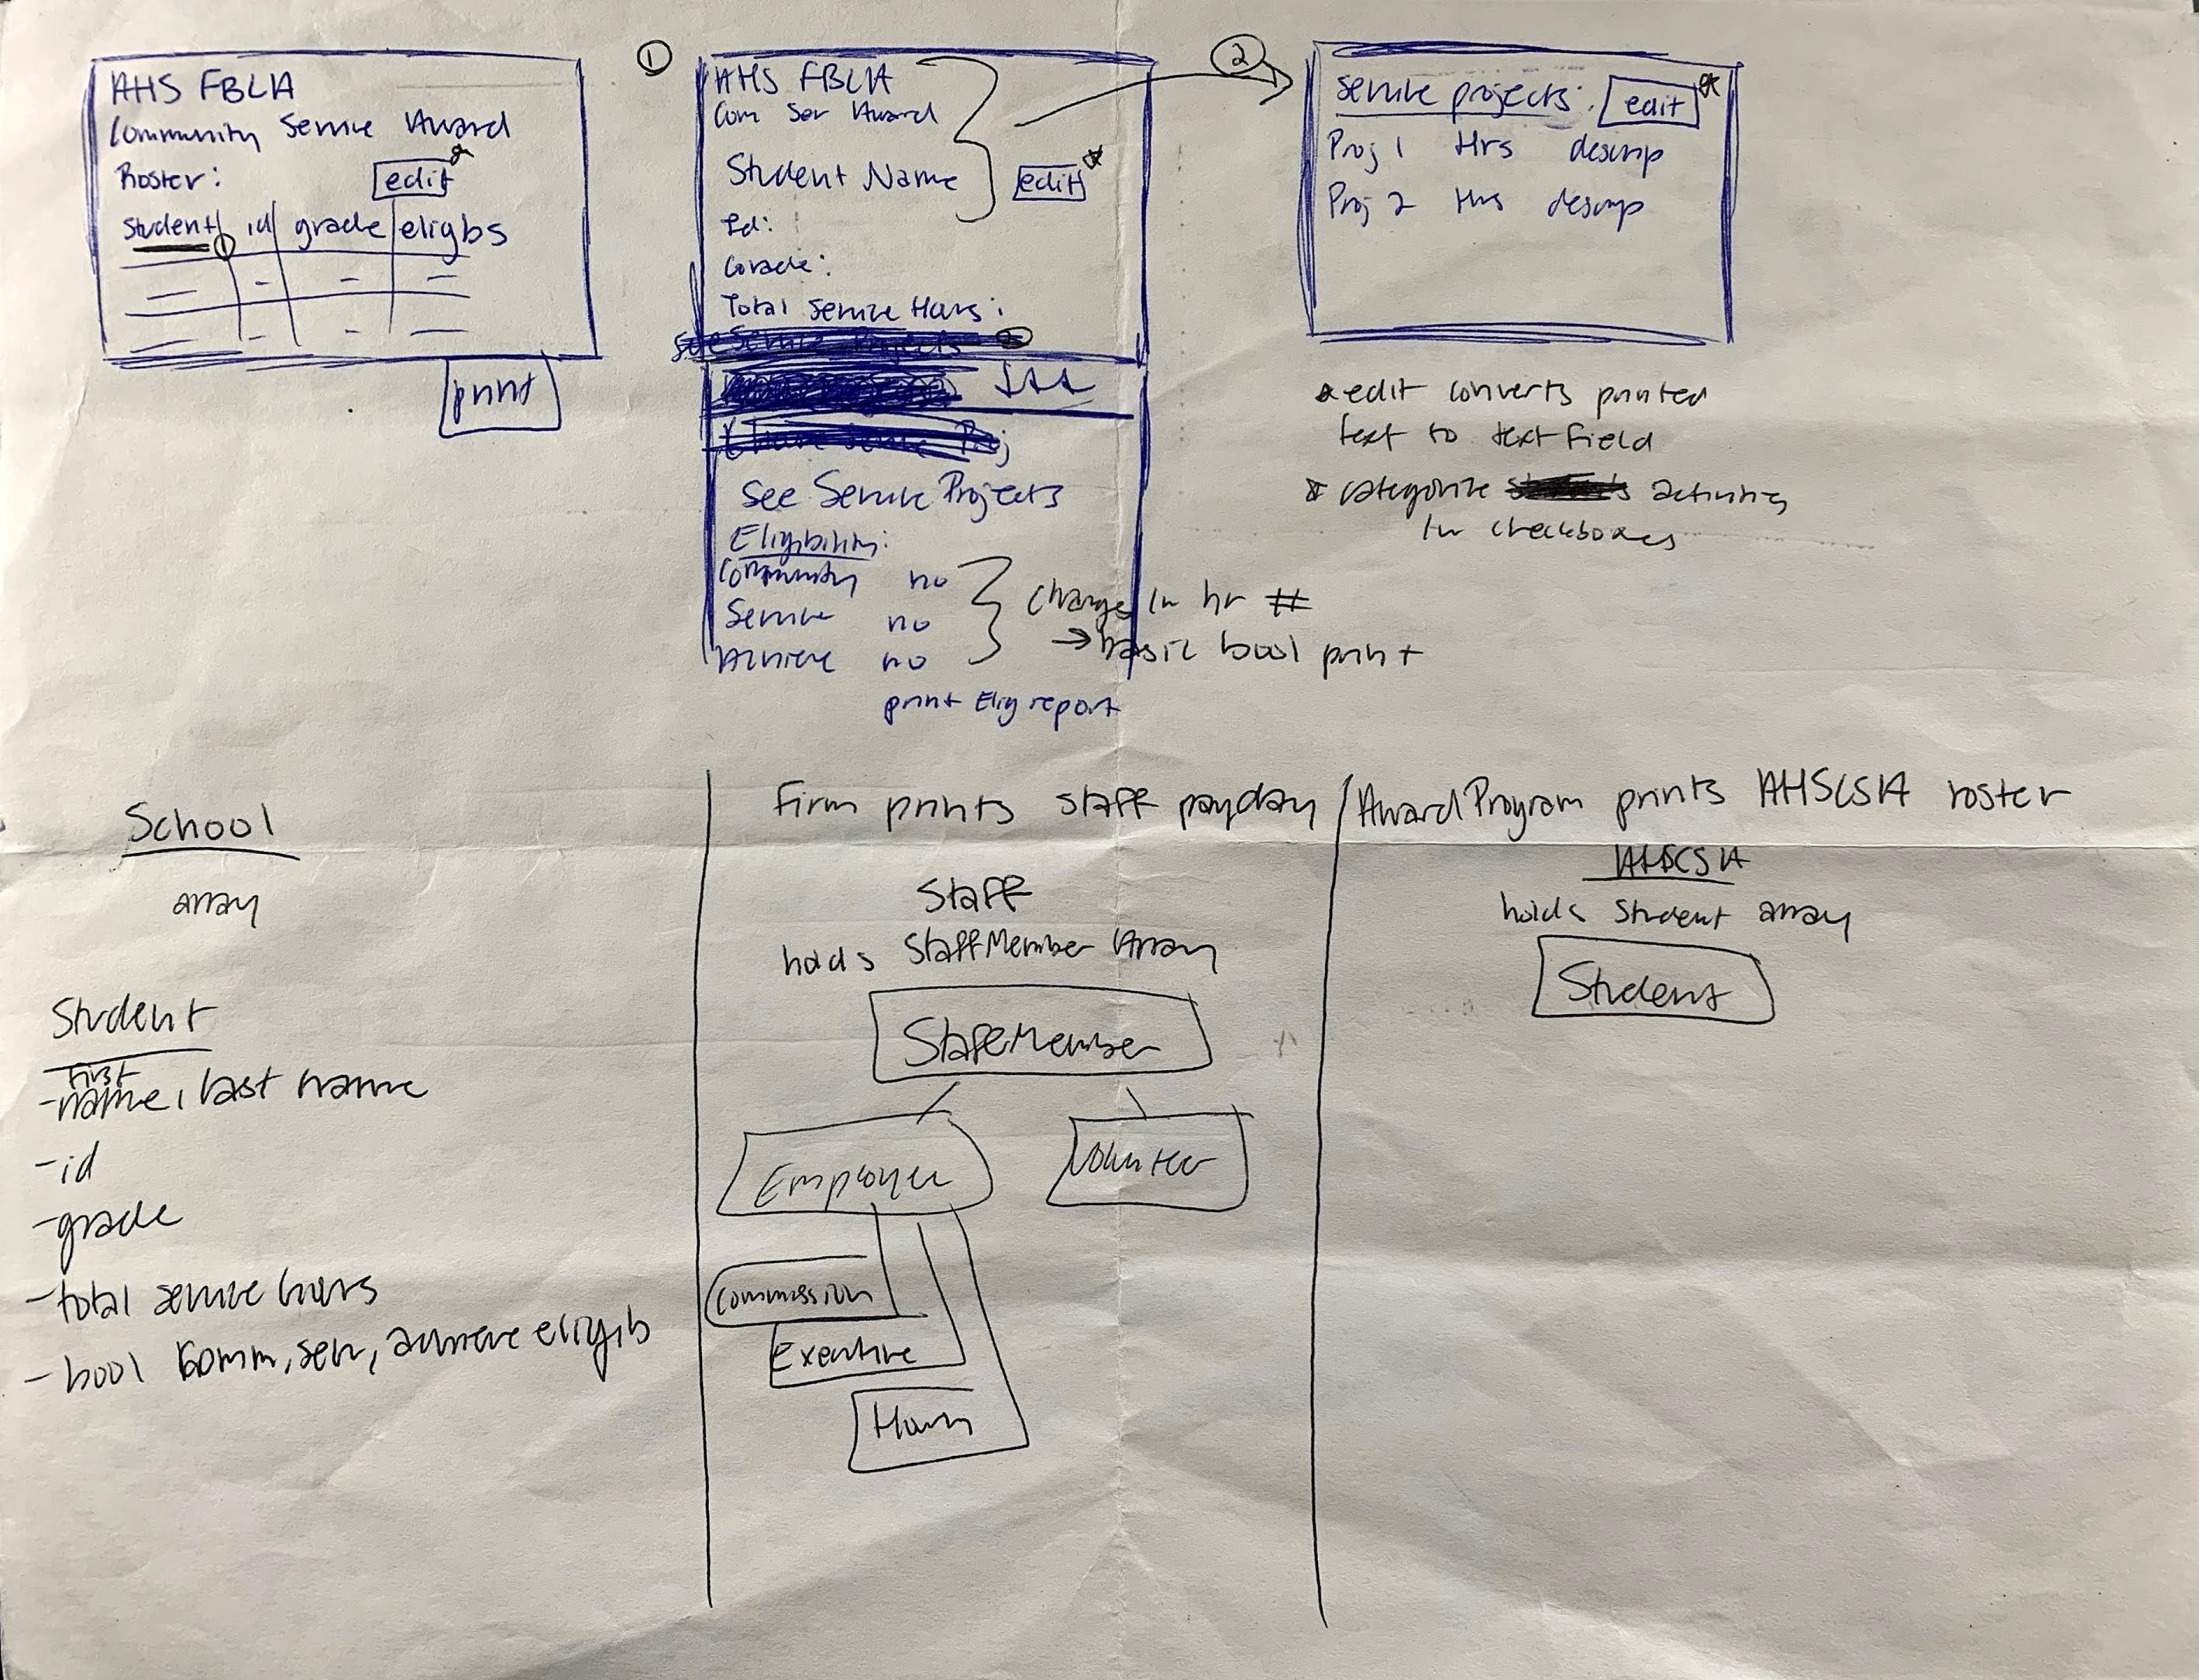 AHS FBLA
Community Service Award
Roster: edit
student id grade eligbs
print
1
AHS FBLA
Com Ser Award
Student Name edit
Id:
Grade:
Total Service Hours:
see Service Projects
See Service Projects
Eligibility:
Community no
Service no
Achieve no
change in hr #
→ basic bool print
print Elig report
2
service projects: edit
Proj 1 Hrs descrip
Proj 2 Hrs descrip
* edit converts printed
text to textfield
* categorize activities
in checkboxes
School
array
Student
first
-name, last name
-id
-grade
-total service hours
-bool comm, serv, achieve eligib
Firm prints staff payday
Staff
holds StaffMember Array
StaffMember
Employee
Volunteer
Commission
Executive
Hourly
AwardProgram prints AHSCSA roster
AHSCSA
holds Student array
Student